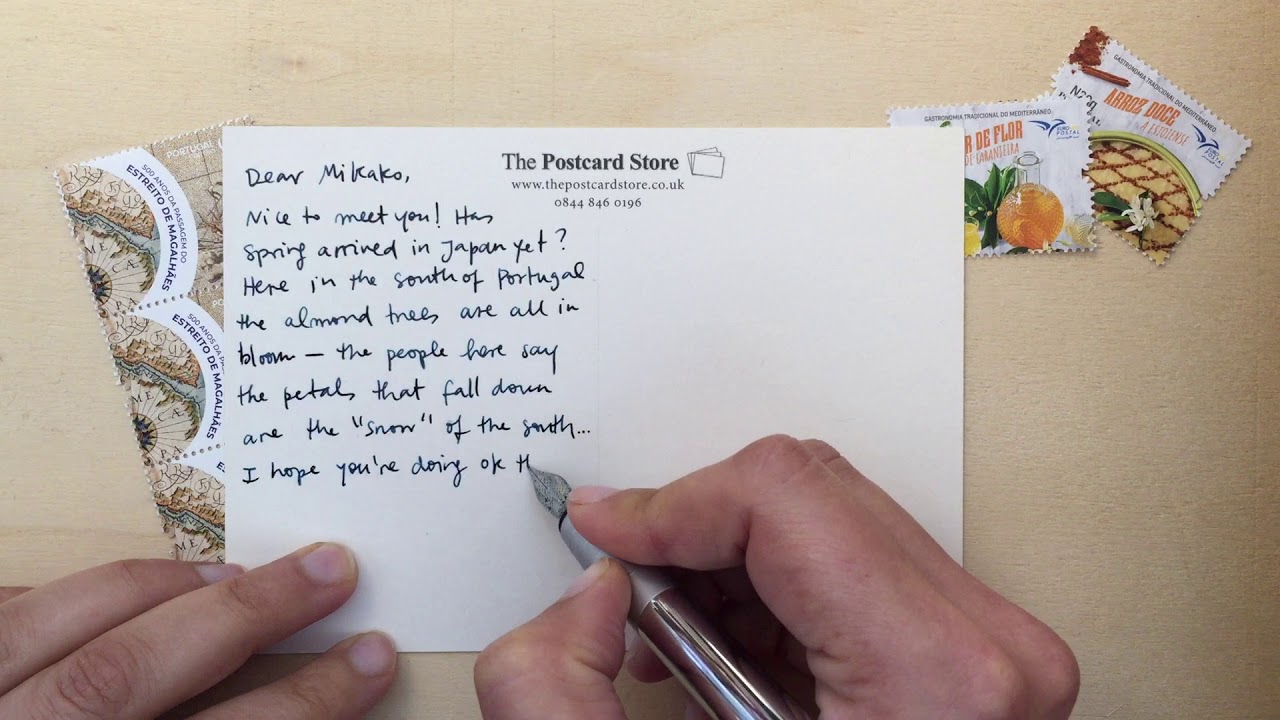 The Postcard Store
www.thepostcardstore.co.uk
0844 846 0196
Dear Mikako,
Nice to meet you! Has
Spring arrived in Japan yet?
Here in the south of Portugal
the almond trees are all in
bloom — the people here say
the petals that fall down
are the "snow" of the south...
I hope you're doing ok th
PORTUGAL
500 ANOS DA PASSAGEM DO
ESTREITO DE MAGALHÃES
500 ANOS DA PASSAGEM DO
ESTREITO DE MAGALHÃES
ESTREITO DE MAGALHÃES
GASTRONOMIA TRADICIONAL DO MEDITERRÂNEO
R DE FLOR
DE LARANJEIRA
EURO
POSTAL
GASTRONOMIA TRADICIONAL DO MEDITERRÂNEO
N20g
ARROZ DOCE
À ESTOIENSE
EURO
POSTAL